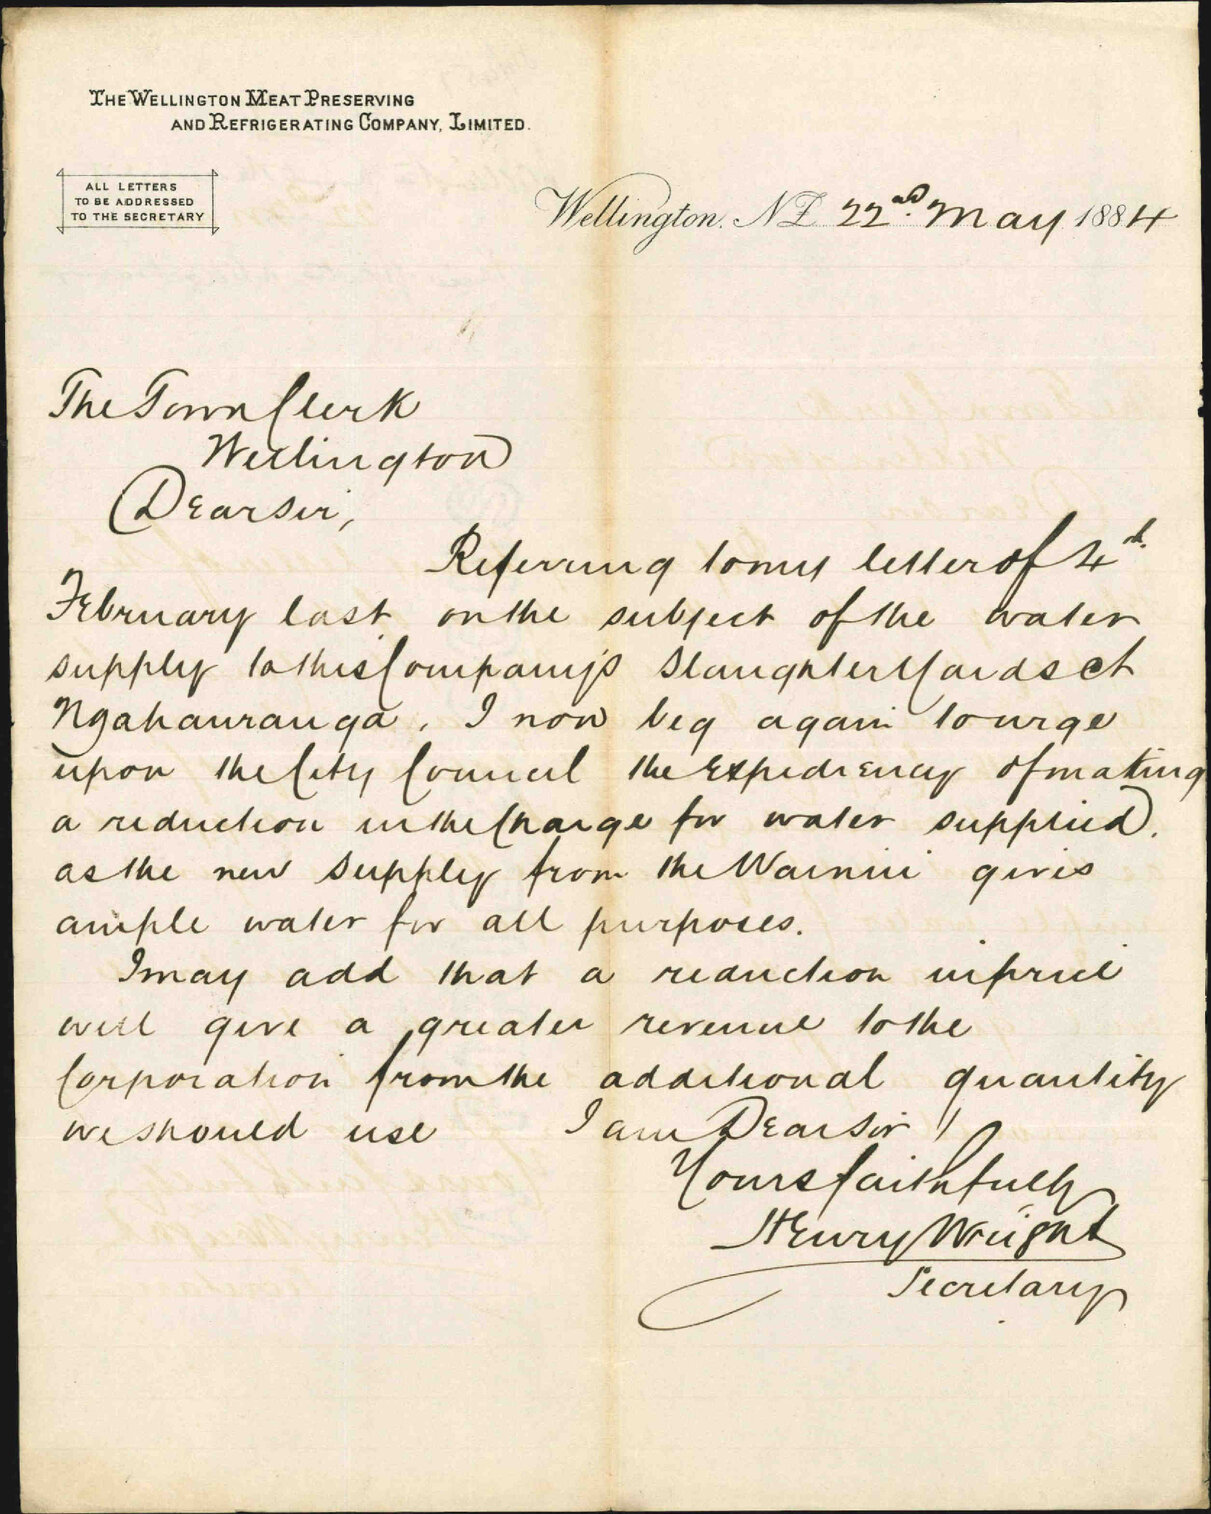 THE WELLINGTON MEAT PRESERVING
AND REFRIGERATING COMPANY, LIMITED.
ALL LETTERS
TO BE ADDRESSED
TO THE SECRETARY
Wellington. NZ 22nd May 1884
The Town Clerk
Wellington
Dear Sir,
Referring to my letter of 4th
February last on the subject of the water
supply to this Company's Slaughter Yards at
Ngahauranga, I now beg again to urge
upon the City Council the Expediency of making
a reduction in the Charge for water supplied.
as the new supply from the Wainui gives
ample water for all purposes.
I may add that a reduction in price
will give a greater revenue to the
Corporation from the additional quantity
we should use I am Dear Sir
Yours faithfully
Henry Wright
Secretary